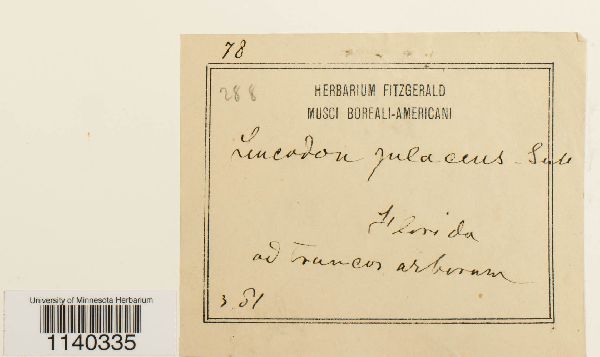 78
288
HERBARIUM FITZGERALD
MUSCI BOREALI-AMERICANI
Leucodon julaceus
Florida
ad truncos arborum
3.81
University of Minnesota Herbarium
1140335